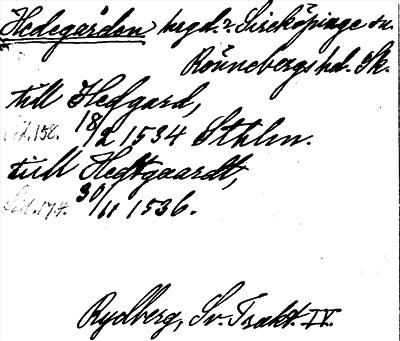 Hedegården begd.? Sireköpinge sn.
Rönnebergs hd. Sk.
till Hedgard,
Sid. 158. 18/2 1534 Sthlm.
till Hedtgaardt,
Sid. 174. 30/11 1536.
Rydberg, Sv. Trakt. IV.